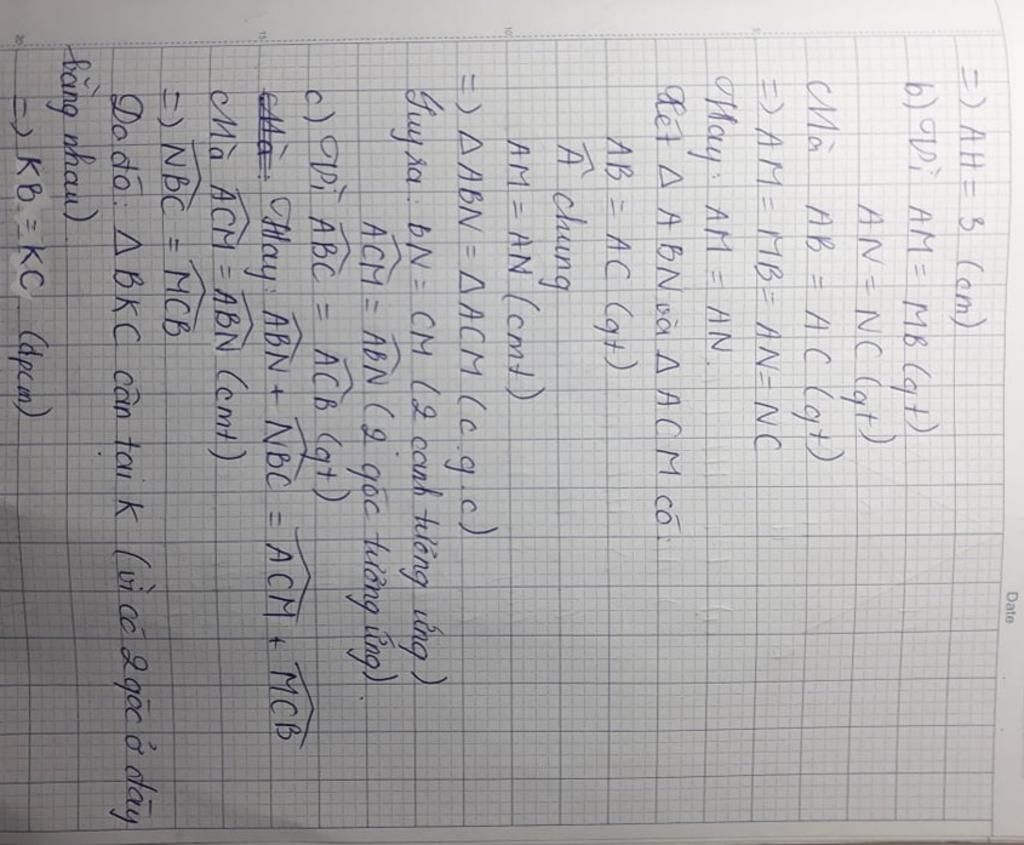 Date
=) AH = 3 (cm)
b) Vì AM = MB (gt)
AN = NC (gt)
Mà AB = AC (gt)
=) AM = MB = AN = NC
Hay: AM = AN.
Xét Δ ABN và Δ ACM có:
AB = AC (gt)
Â chung
AM = AN (cmt)
=) Δ ABN = Δ ACM (c.g.c)
Suy ra: BN = CM (2 cạnh tương ứng)
\widehat{ACM} = \widehat{ABN} (2 góc tương ứng).
c) Vì \widehat{ABC} = \widehat{ACB} (gt)
Hay: \widehat{ABN} + \widehat{NBC} = \widehat{ACM} + \widehat{MCB}
Mà \widehat{ACM} = \widehat{ABN} (cmt)
=) \widehat{NBC} = \widehat{MCB}
Do đó: Δ BKC cân tại K (vì có 2 góc ở đáy
bằng nhau)
=) KB = KC (đpcm)